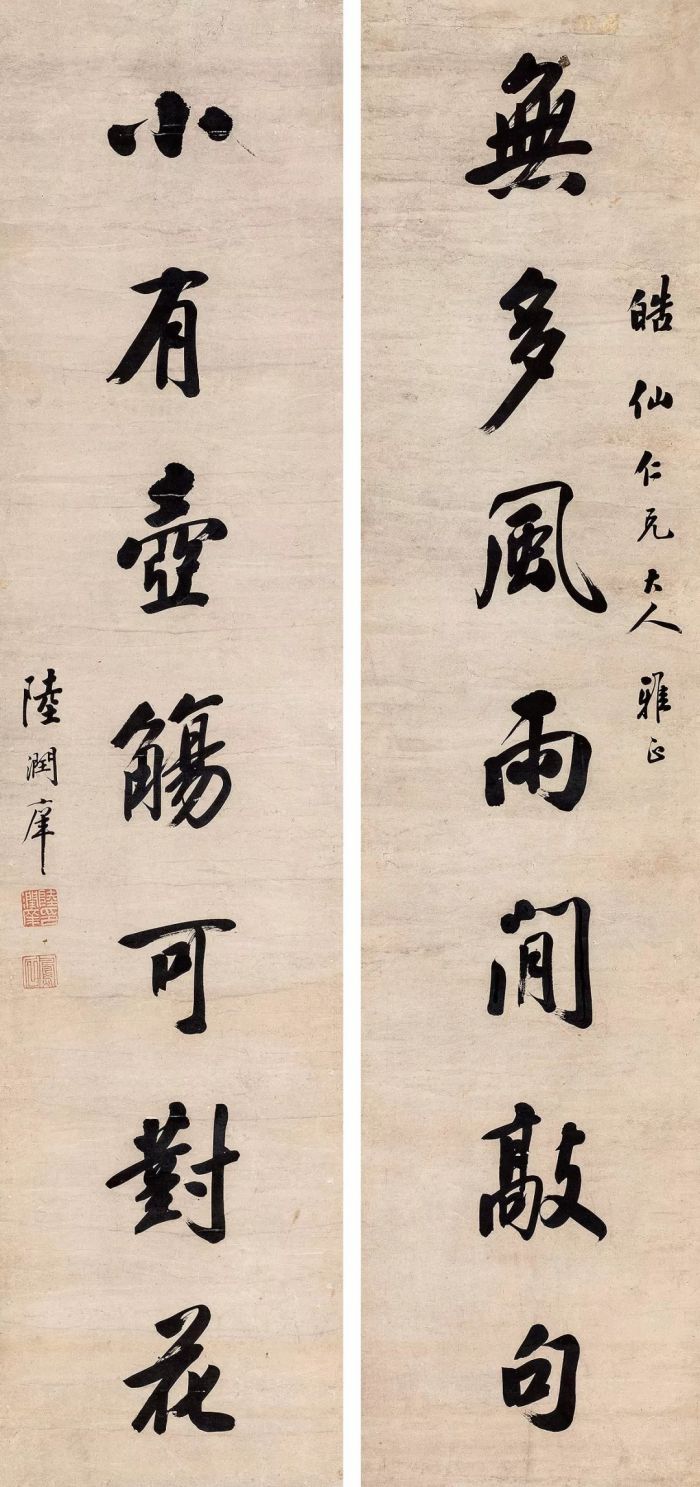 皓仙仁兄大人雅正
無多風雨閒敲句
小有壺觴可對花
陸潤庠
陸印潤庠
鳳石